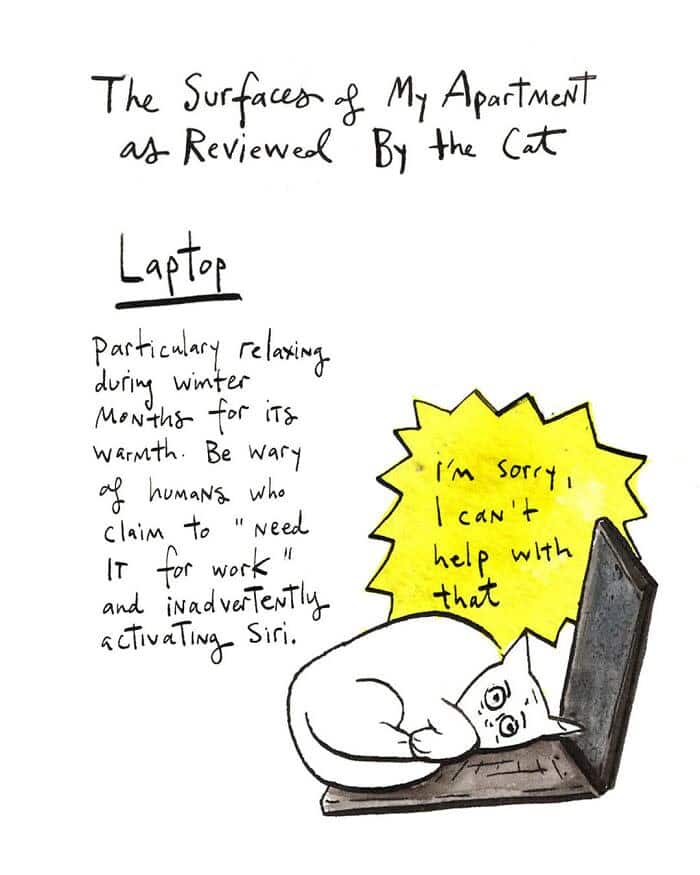 The Surfaces of My Apartment
as Reviewed By the Cat
Laptop
Particulary relaxing
during winter
Months for its
warmth. Be wary
of humans who
claim to "Need
IT for work"
and inadvertently
activating Siri.
i'm sorry,
I can't
help with
that